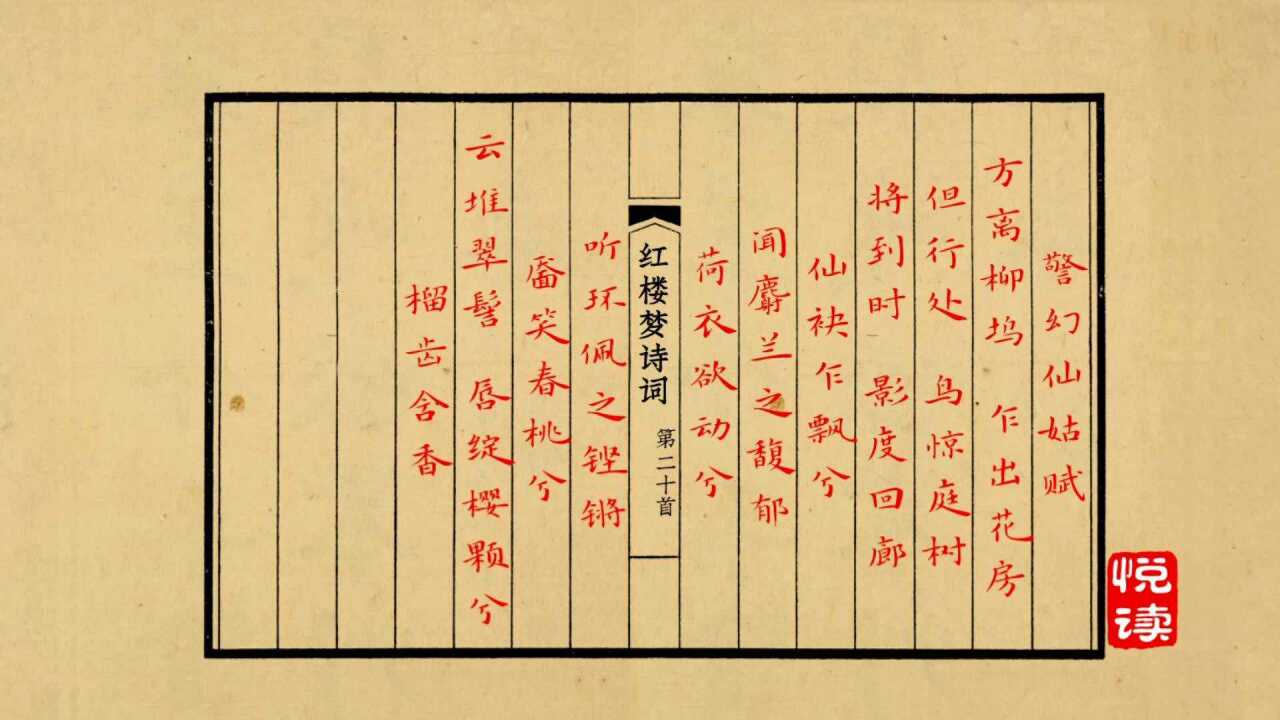 警幻仙姑赋
方离柳坞 乍出花房
但行处 鸟惊庭树
将到时 影度回廊
仙袂乍飘兮
闻麝兰之馥郁
荷衣欲动兮
红楼梦诗词 第二十首
听环佩之铿锵
靥笑春桃兮
云堆翠髻 唇绽樱颗兮
榴齿含香
悦读